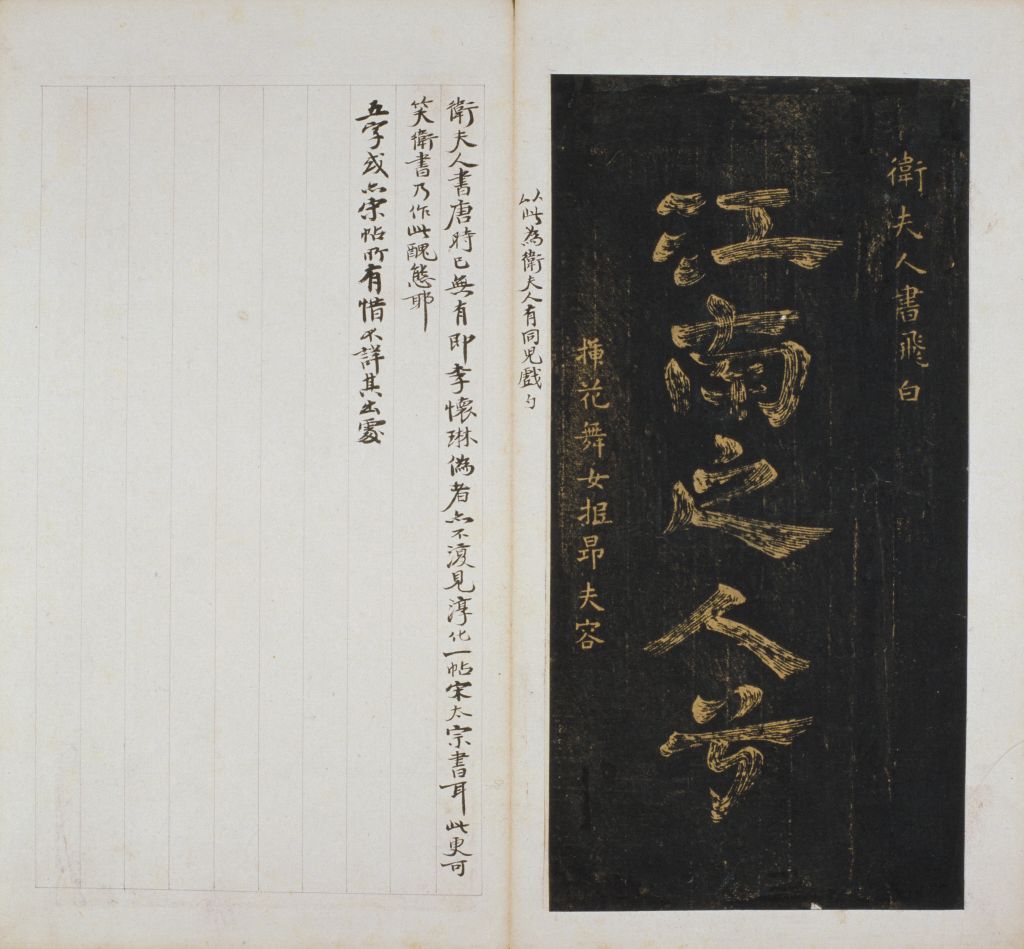 衛夫人書飛白
江南之人兮
插花舞女抿昂夫容
以此為衛夫人有同兒戲
衛夫人書唐時已無有即李懷琳偽者亦不復見淳化一帖宋太宗書耳此更可
笑衛書乃作此醜態耶
五字或亦宋帖所有惜不詳其出處